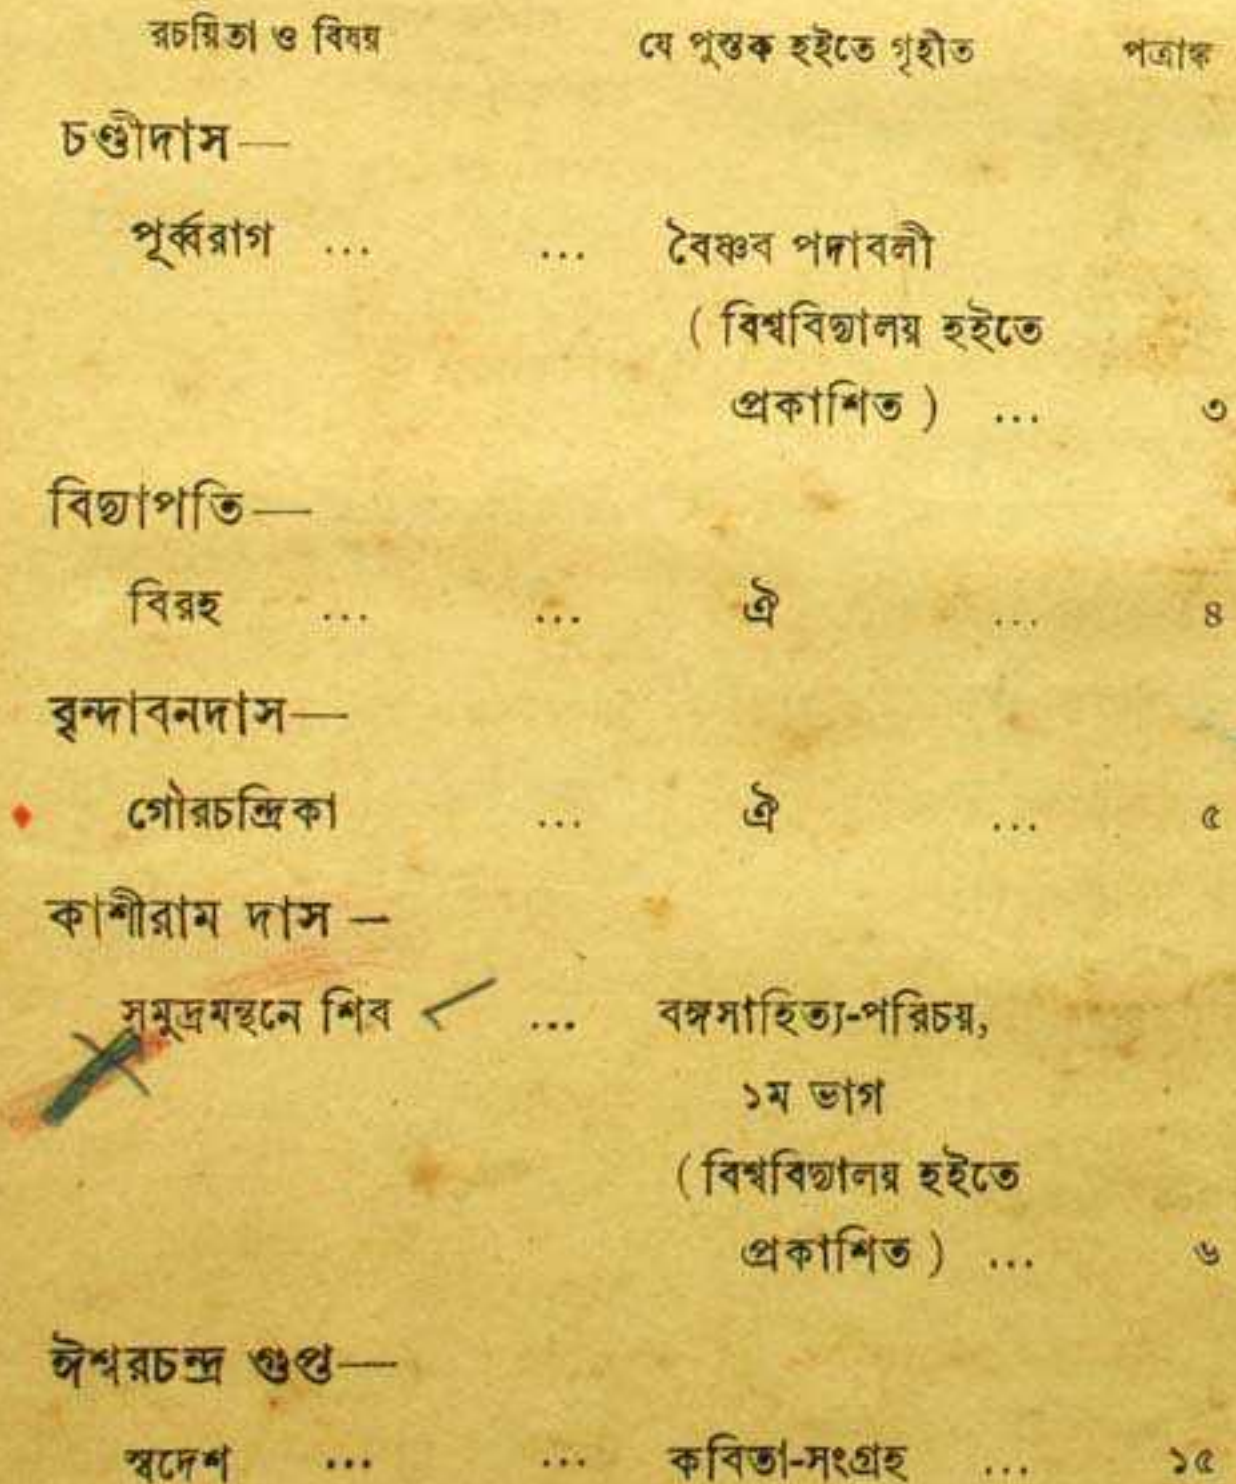 রচয়িতা ও বিষয় যে পুস্তক হইতে গৃহীত পত্রাঙ্ক
চণ্ডীদাস—
পূর্ব্বরাগ ... ... বৈষ্ণব পদাবলী
( বিশ্ববিদ্যালয় হইতে
প্রকাশিত ) ... ৩
বিদ্যাপতি—
বিরহ ... ... ঐ ... ৪
বৃন্দাবনদাস—
গৌরচন্দ্রিকা ... ঐ ... ৫
কাশীরাম দাস —
সমুদ্রমন্থনে শিব ... বঙ্গসাহিত্য-পরিচয়,
১ম ভাগ
( বিশ্ববিদ্যালয় হইতে
প্রকাশিত ) ... ৬
ঈশ্বরচন্দ্র গুপ্ত—
স্বদেশ ... ... কবিতা-সংগ্রহ ... ১৫